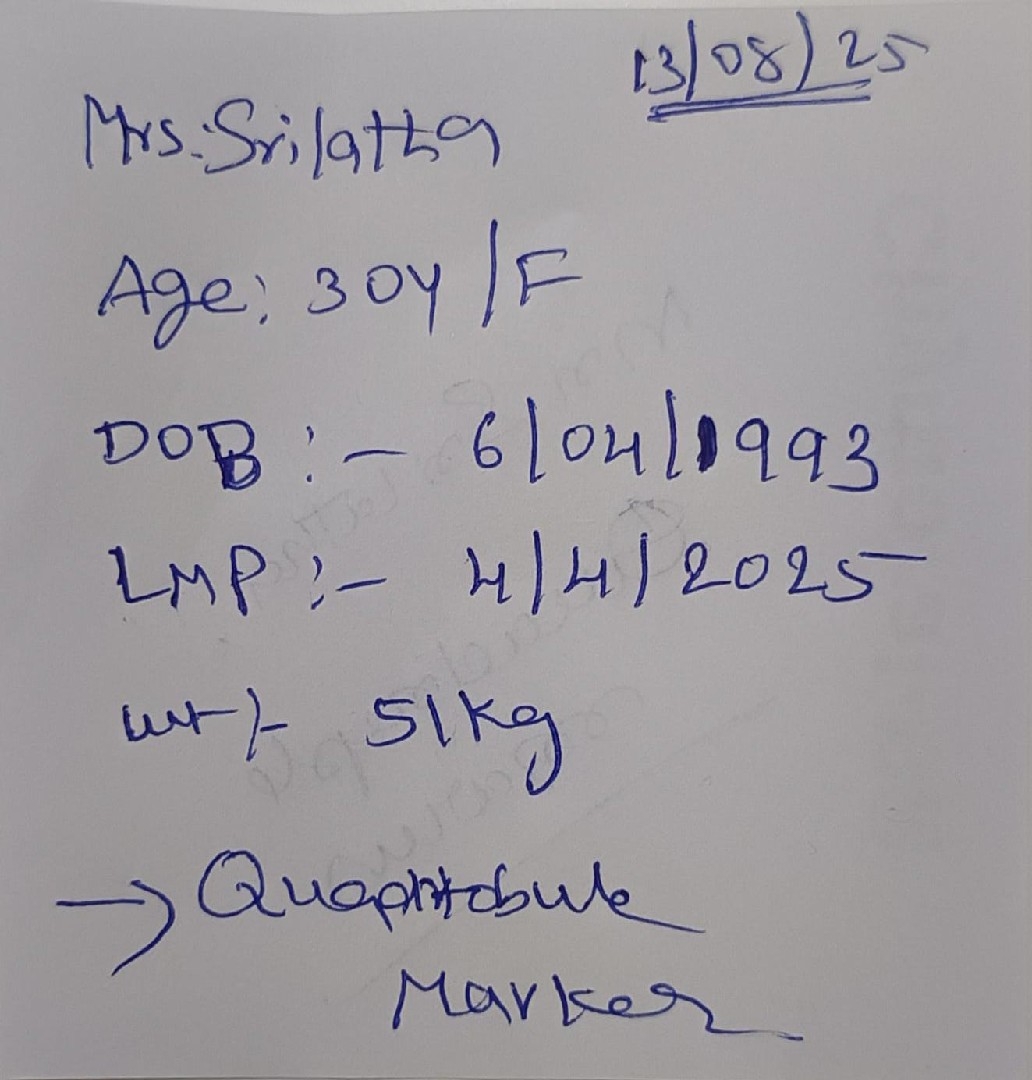 13/08/25
Mrs. Srilatha
Age: 30Y/F
DOB :- 6/04/1993
LMP :- 4/4/2025
wt :- 51kg
→ 
Marker